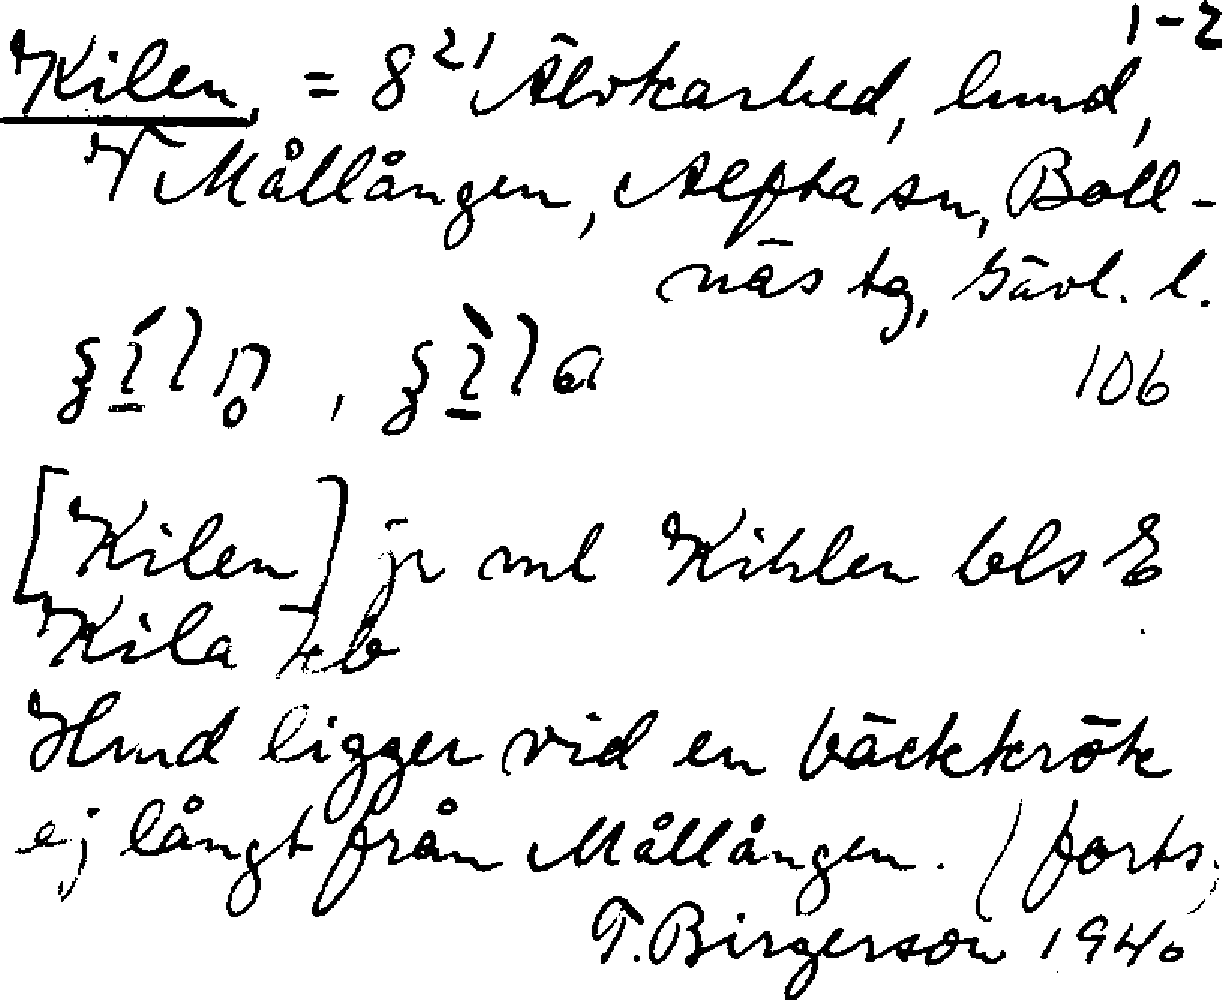 1-2
Kilen, = 8²¹ Älvkarhed, hmd,
V Mållången, Alfta sn, Boll-
näs tg, Gävl. l.
106
[Kilen] jr ml Kihlen bls E
Kila kb
Hmd ligger vid en bäckkrök
ej långt från Mållången. (forts.)
T. Birgerson 1940